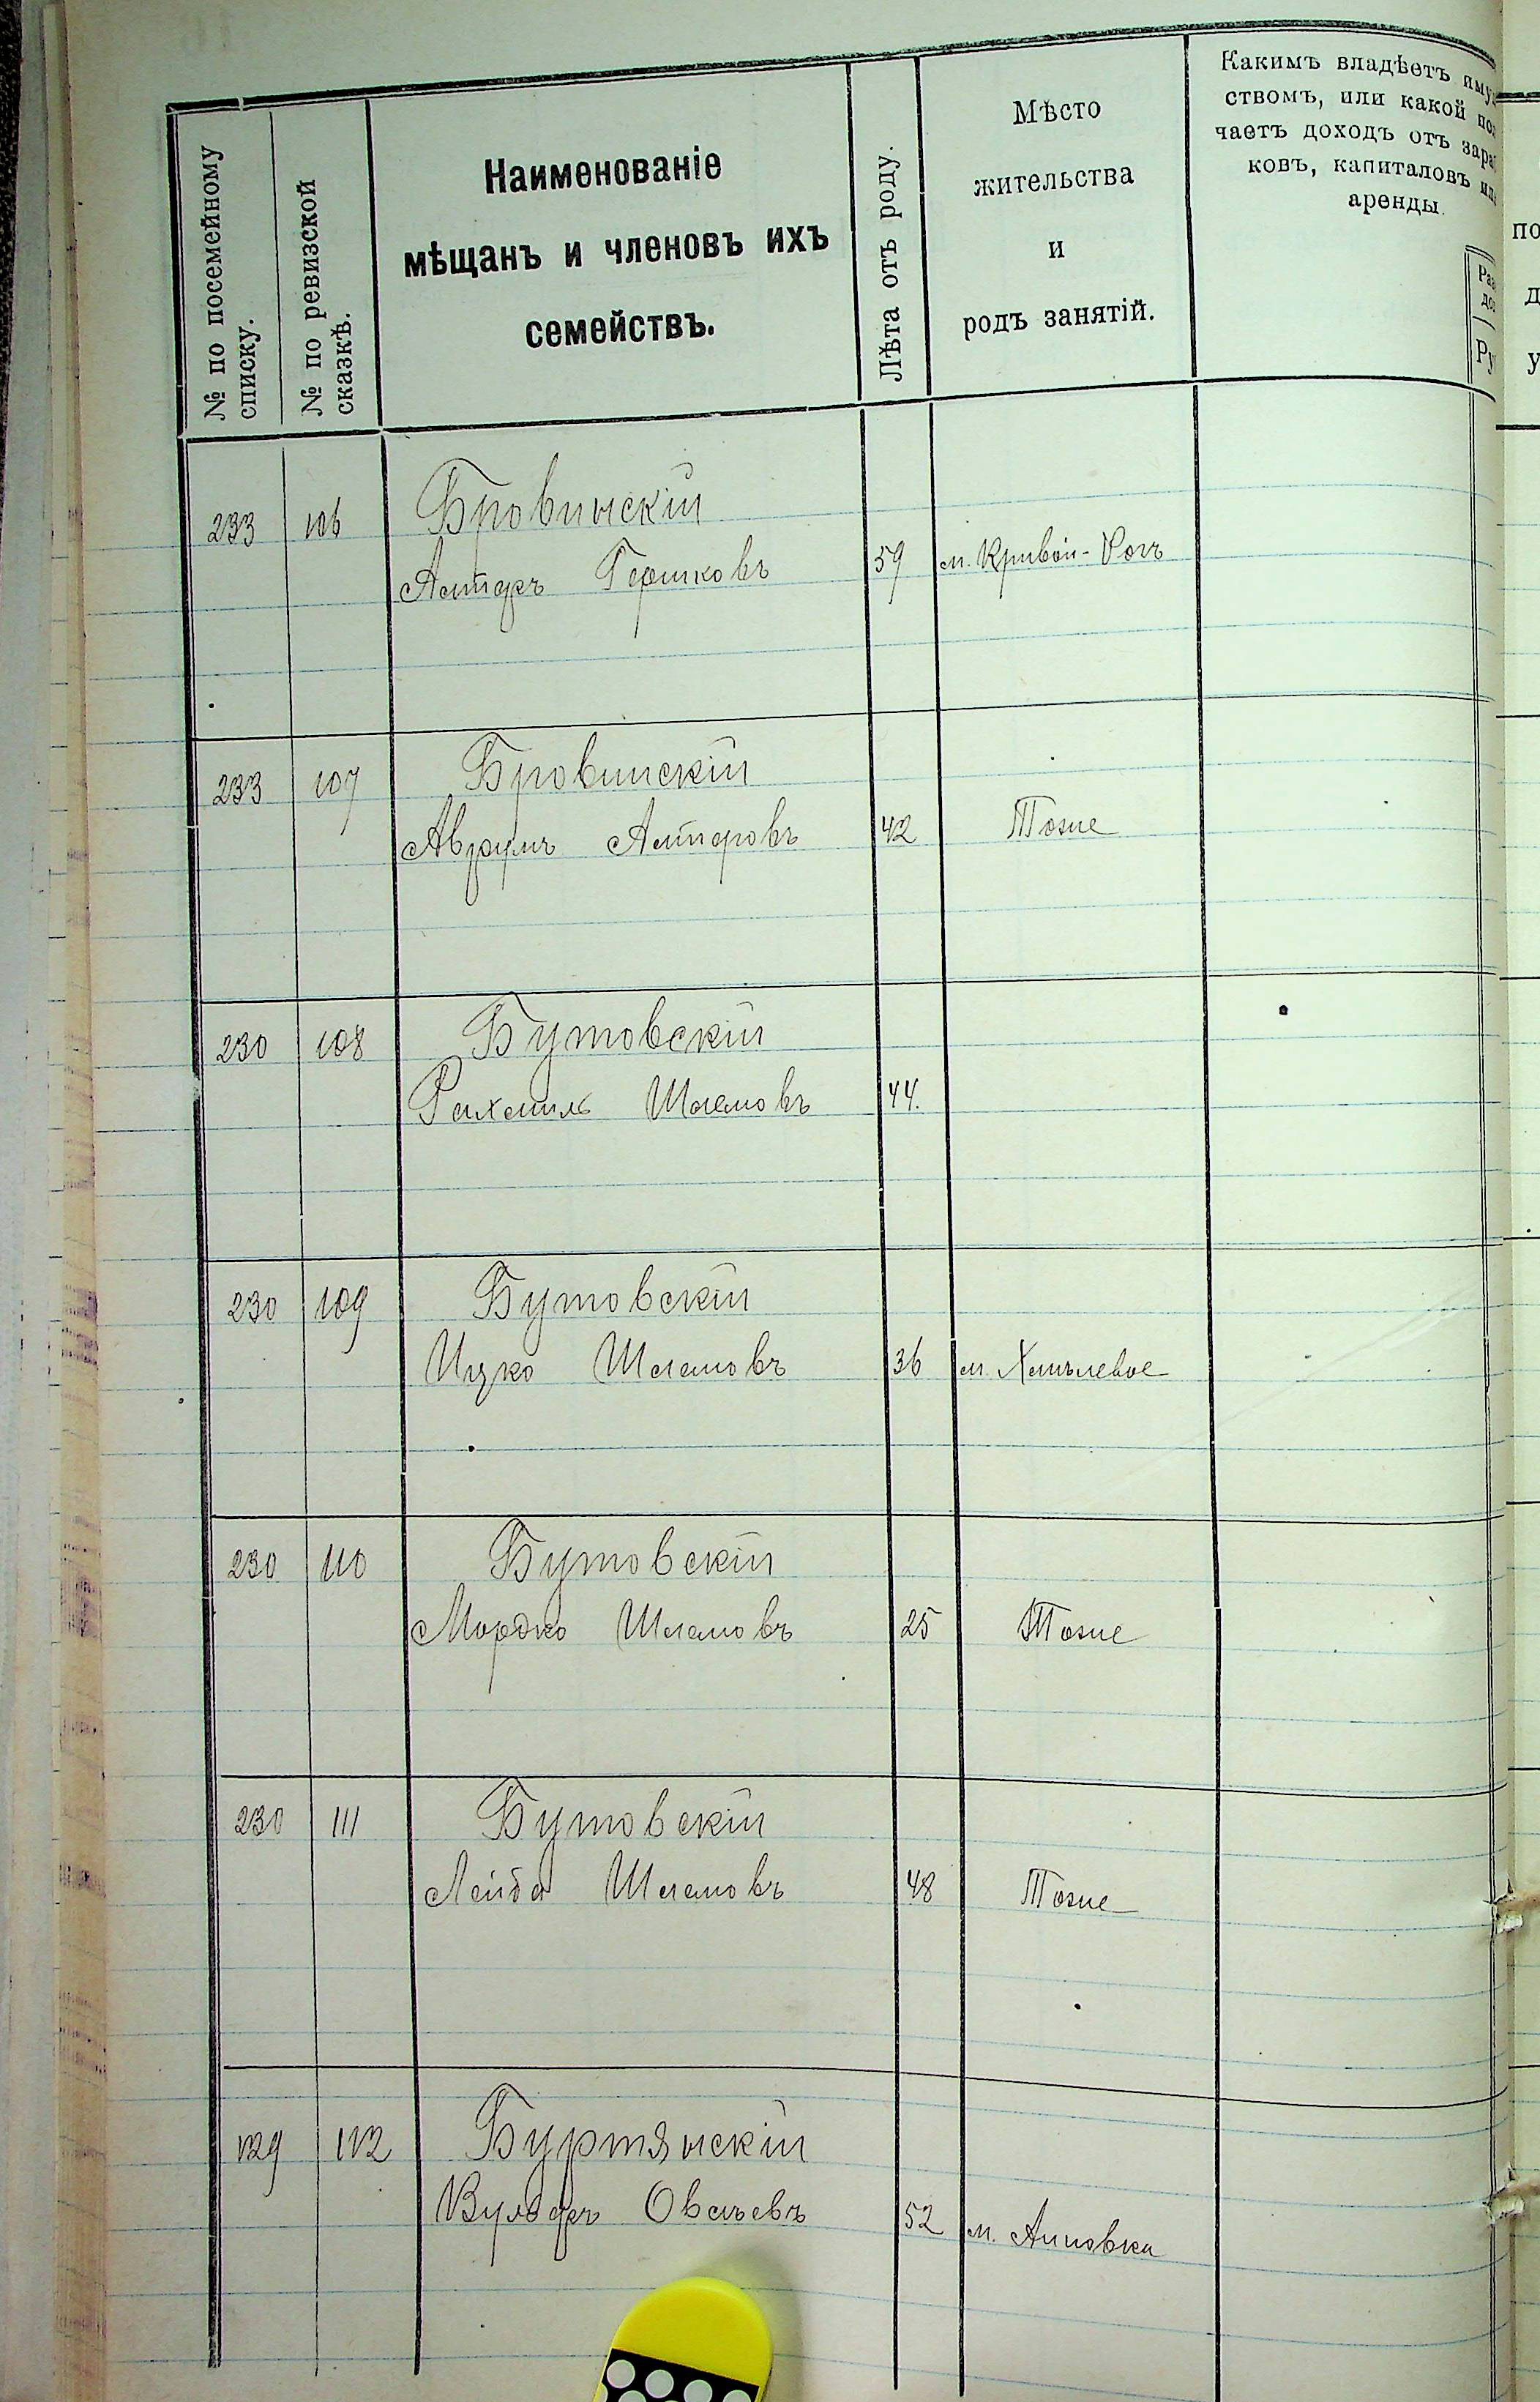 № по посемейному
списку.
№ по ревизской
сказкѣ.
Наименованіе
мѣщанъ и членовъ ихъ
семействъ.
Лѣта отъ роду.
Мѣсто
жительства
и
родъ занятій.
Какимъ владѣетъ иму
ствомъ, или какой по
чаетъ доходъ отъ зара
ковъ, капиталовъ или
аренды.
Ру
233 106 Бровинскій
Алтеръ Гершковъ 59 м. Кривой-Рогъ
233 107 Бровинскій
Аврумъ Алтеровъ 42 Тоже
230 108 Бутовскій
Рахмиль Шлемовъ 44.
230 109 Бутовскій
Ицко Шлемовъ 36 м. Хмѣлевое
230 110 Бутовскій
Мордко Шлемовъ 25 Тоже
230 111 Бутовскій
Лейба Шлемовъ 48 Тоже
129 112 Буртянскій
Вульфъ Овсѣевъ 52 м. Анновка